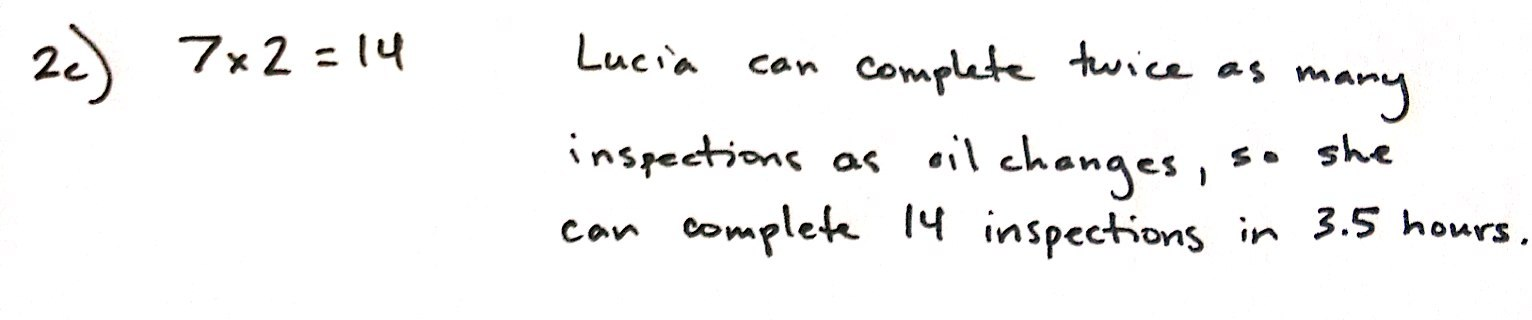 2c) 7x2 = 14 Lucia can complete twice as many
inspections as oil changes, so she
can complete 14 inspections in 3.5 hours.